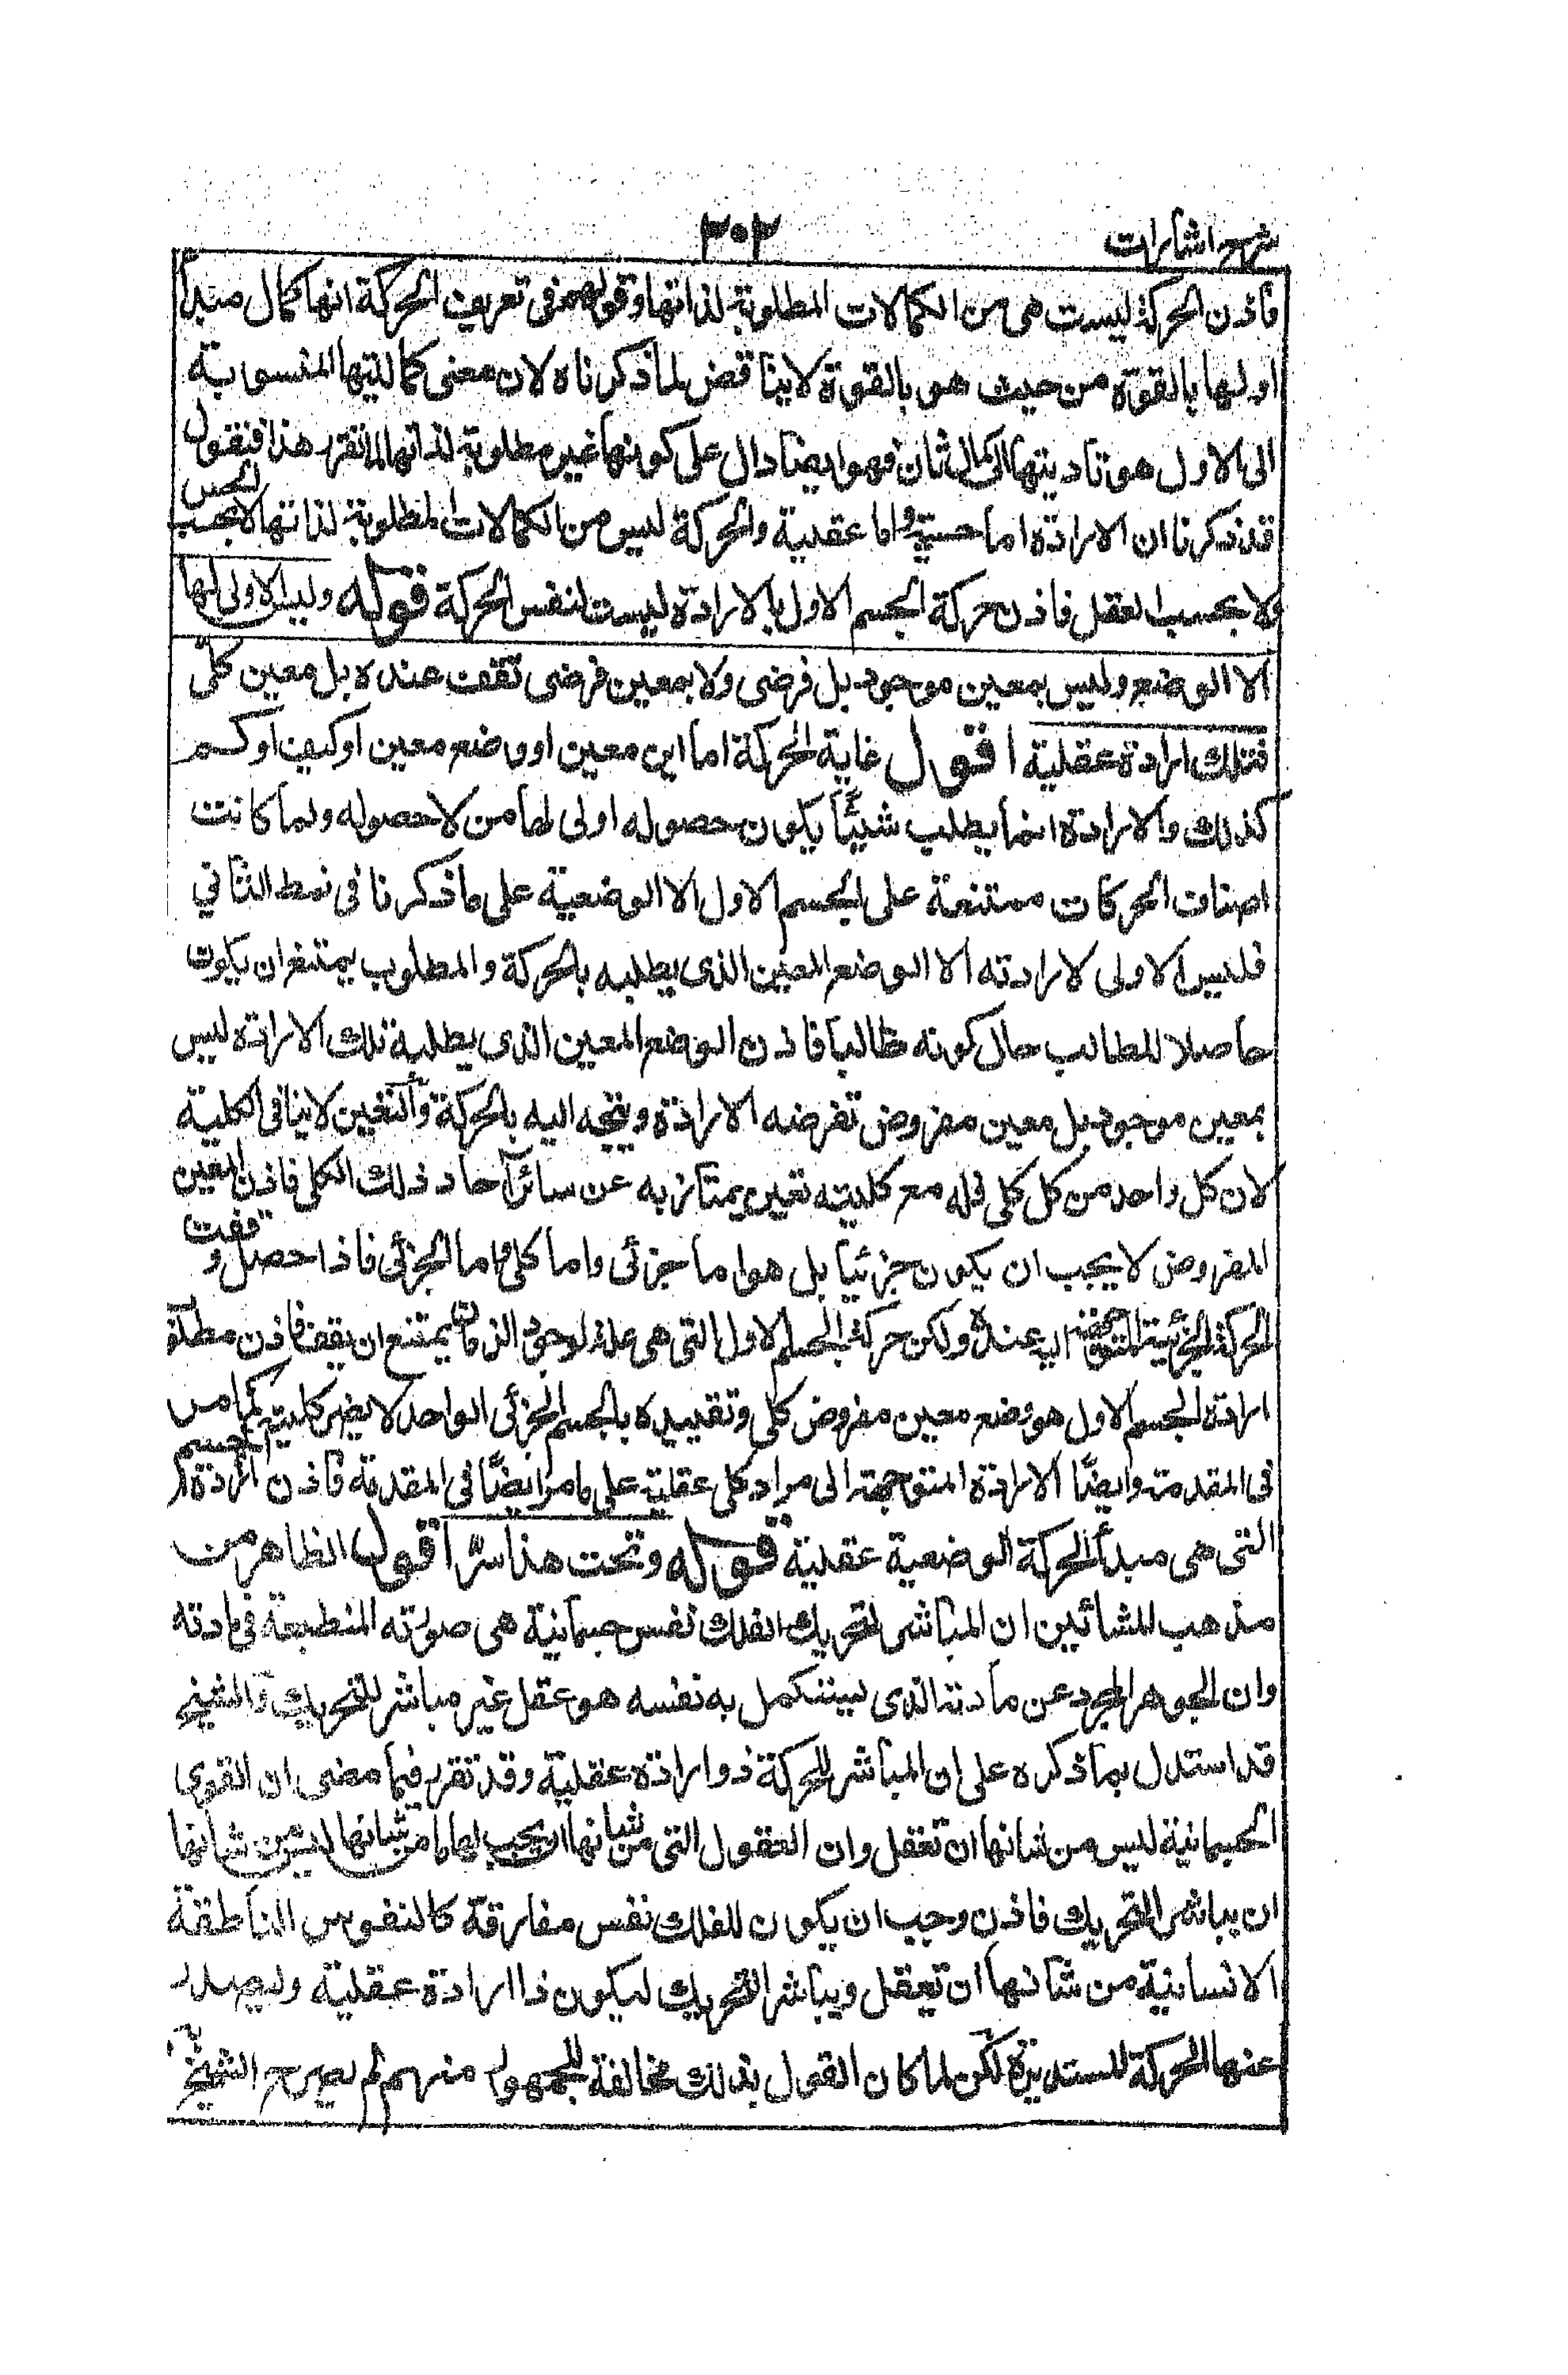 شرح اشارات
٣٠٢
فاذن الحركة ليست هى من الكمالات المطلوبة لذاتها وقولهم فى تعريف الحركة انها كمال مبدأ
اولها بالقوة من حيث هو بالقوة لا يناقض لما ذكرناه لان معنى كماليتها المنسوبة
الى الاول هو تاديتها الى كمال ثان فهو ايضا دال على كونها غير مطلوبة لذاتها لما تقرر هذا فنقول
قد ذكرنا ان الارادة اما حسية واما عقلية والحركة ليس من الكمالات المطلوبة لذاتها لا بحسب الحس
ولا بحسب العقل فاذن حركة الجسم الاول بالارادة ليست لنفس الحركة قوله وليس الاولى لها
الا الوضع وليس بمعين موجود بل فرضى ولا بمعين فرضى تقف عنده بل معين كلى
فتلك ارادة عقلية اقول غاية الحركة اما اين معين او وضع معين او كيف او كم
كذلك والارادة انما يطلب شيئا يكون حصوله اولى لها من لا حصوله ولما كانت
اصناف الحركات ممتنعة على الجسم الاول الا الوضعية على ما ذكرنا فى نمط الثاني
فليس الاولى لارادته الا الوضع المعين الذى يطلبه بالحركة والمطلوب يمتنع ان يكون
حاصلا للطالب حال كونه طالبا فاذن الوضع المعين الذى يطلبه تلك الارادة ليس
بمعين موجود بل معين مفروض تفرضه الارادة ويتجه اليه بالحركة والتعين لا ينافى الكلية
لان كل واحد من كل كلى فله مع كليته تعين يمتاز به عن سائر آحاد ذلك الكلى فاذن المعين
المفروض لا يجب ان يكون جزئيا بل هو اما جزئى واما كلى واما الجزئى فاذا حصل وقفت
الحركة الجزئية المتوجهة اليه عنده ولكن حركة الجسم الاول التى هى علة لوجود الزمان يمتنع ان يقف فاذن مطلوب
ارادة الجسم الاول هو وضع معين مفروض كلى وتقييده بالجسم الجزئى الواحد لا يضر كليته كما مر
فى المقدمة وايضا الارادة المتوجهة الى مراد كلى عقلية على ما مر ايضا فى المقدمة فاذن ارادة الجسم
التى هى مبدأ الحركة الوضعية عقلية قوله وتحت هذا سر اقول الظاهر من
مذهب المشائين ان المباشر لتحريك الفلك نفس جسمانية هى صورته المنطبعة فى مادته
وان الجوهر المجرد عن مادته الذى يستكمل به نفسه هو عقل غير مباشر للتحريك والشيخ
قد استدل بما ذكره على ان المباشر للحركة ذو ارادة عقلية وقد تقرر فيما مضى ان القوى
الجسمانية ليس من شانها ان تعقل وان العقول التى من شانها ان يجب لها ما من شانها ليس من شانها
ان يباشر التحريك فاذن وجب ان يكون للفلك نفس مفارقة كالنفوس الناطقة
الانسانية من شانها ان تعقل ويباشر التحريك ليكون ذا ارادة عقلية وليصدر
عنها الحركة المستديرة لكن لما كان القول بذلك مخالفة للجمهور منهم لم يصرح الشيخ